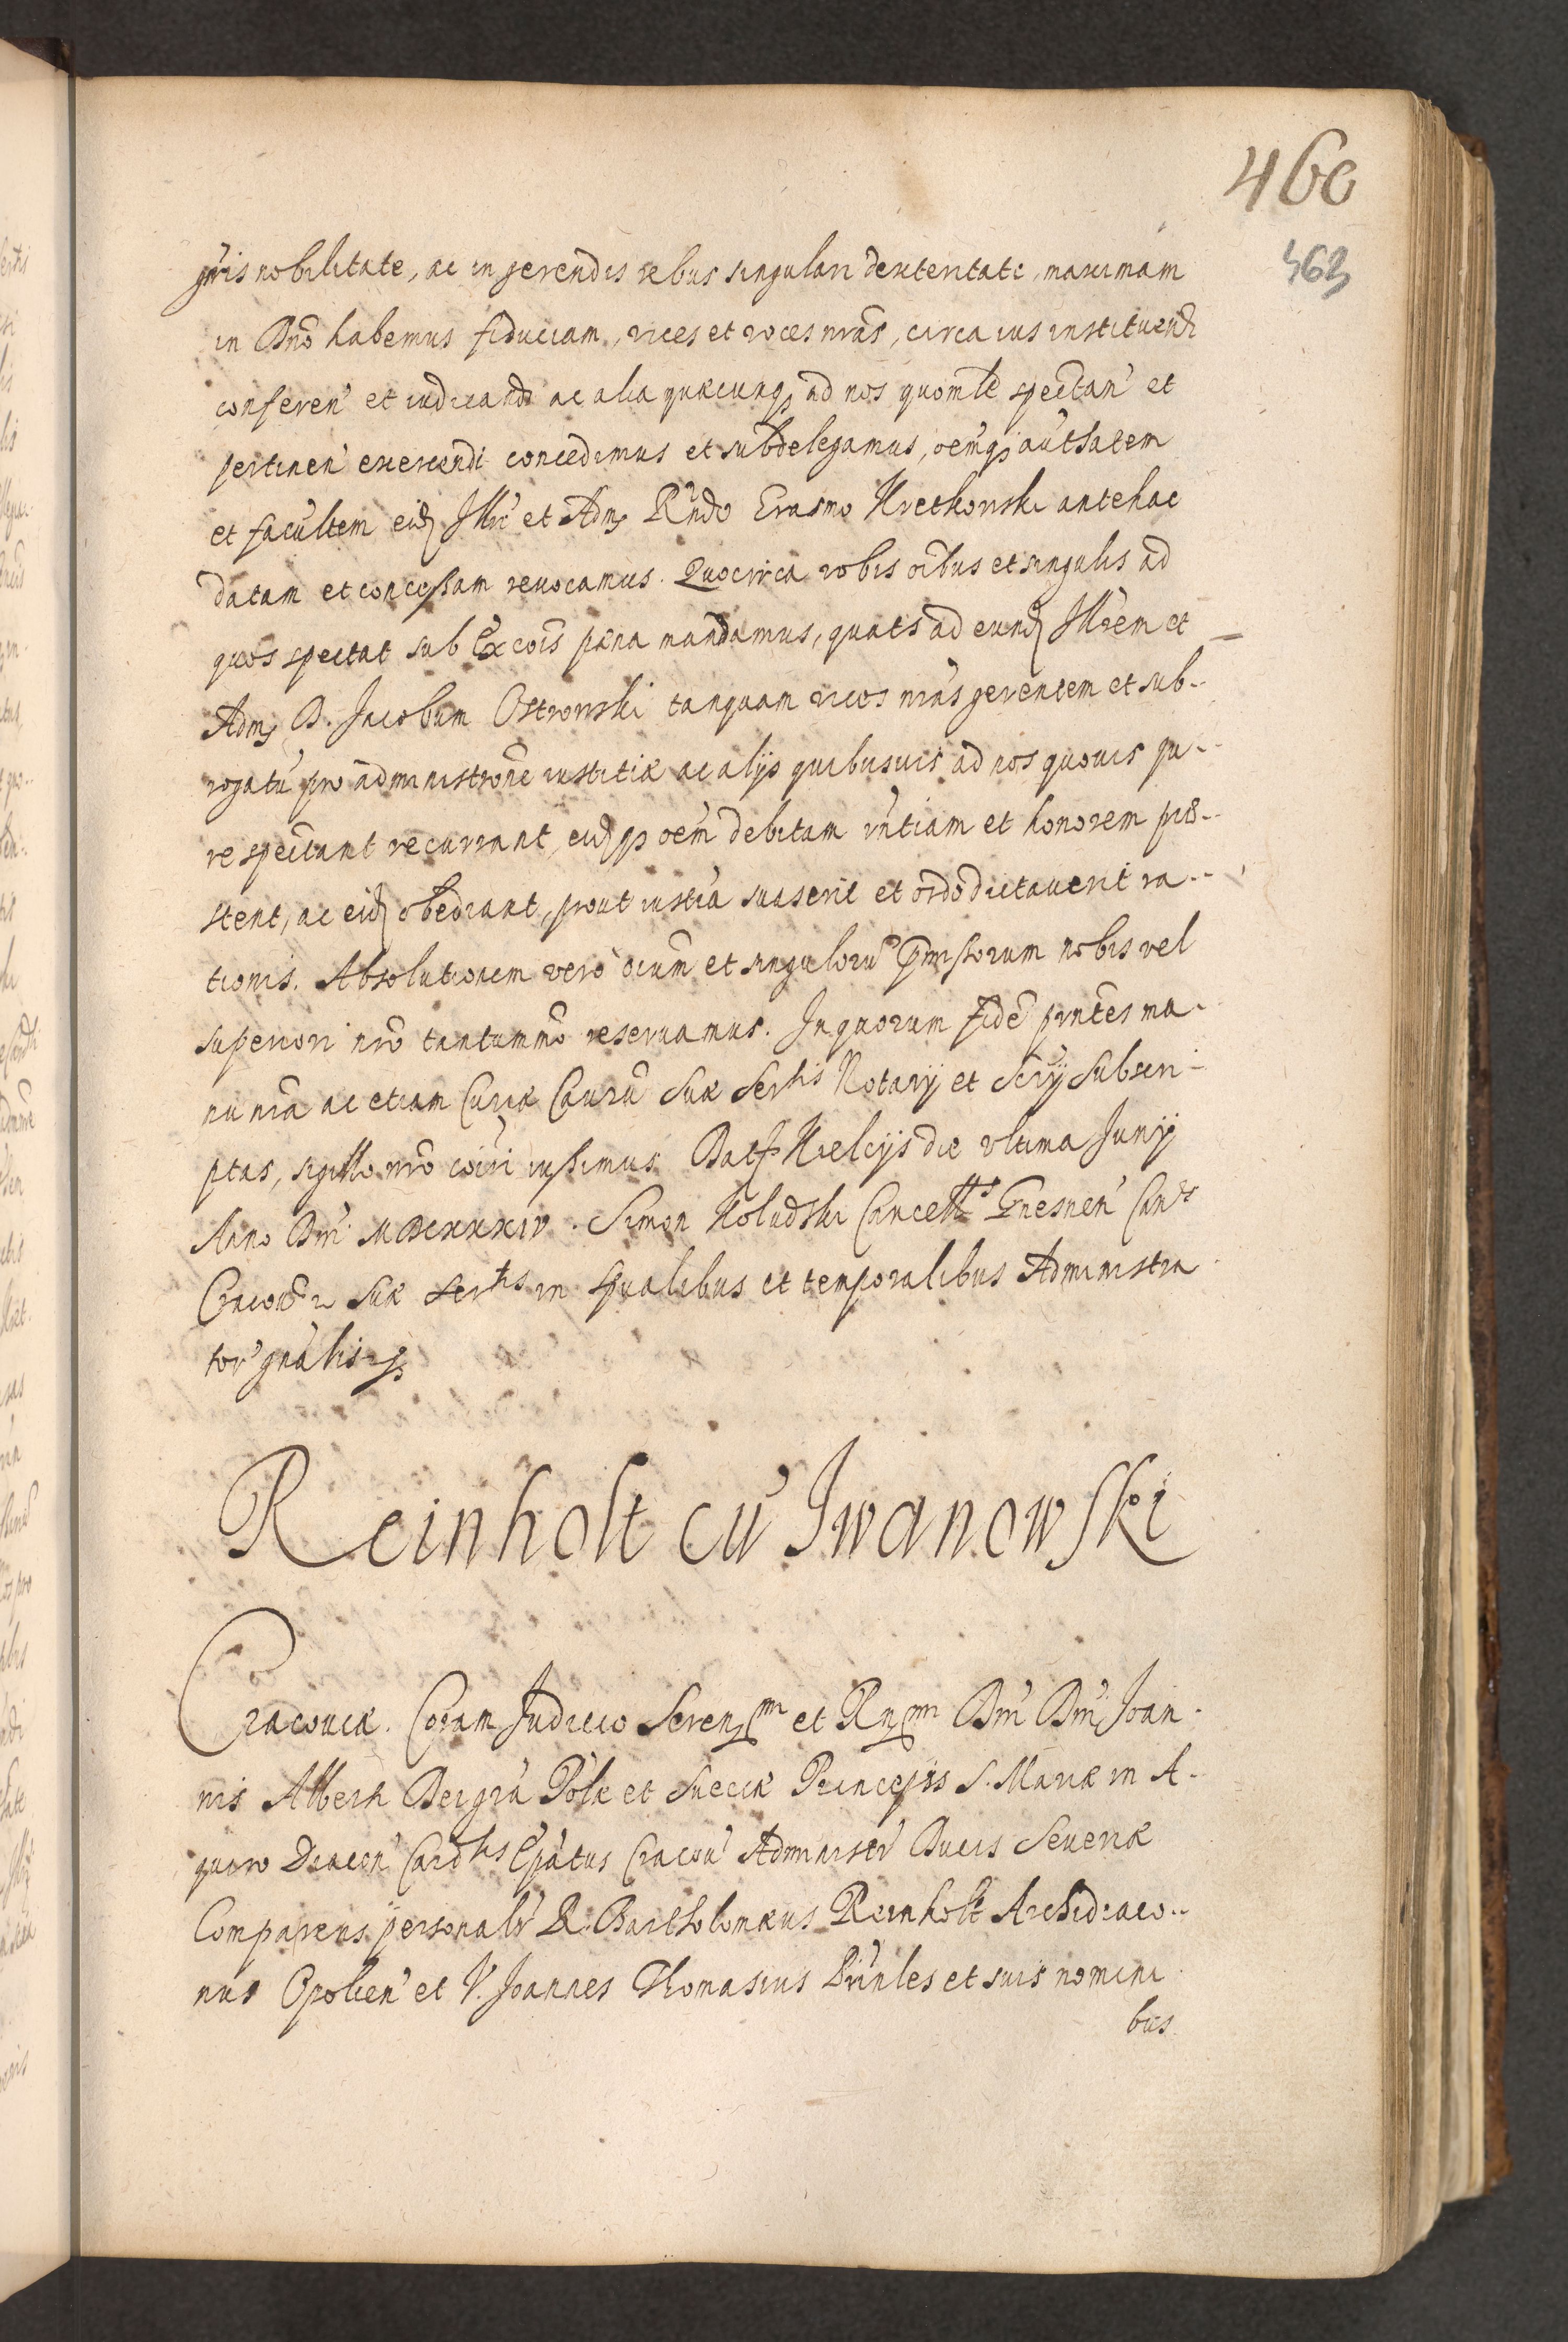 460
463
gnris nobilitate, ac in gerendis rebus singulari dexteritate, maximam
in Dno habemus fiduciam, vices et voces nras, circa ius instituendi
conferen' et iudicandi ac alia quæcunq; ad nos quomlt spectan' et
pertinen' exercendi concedimus et subdelegamus, oemq; authatem
et facultem eid; Illri et Adm Rndo Erasmo Kretkowski antehac
datam et concessam revocamus. Quocirca vobis oibus et singulis ad
quos spectat sub Excois pæna mandamus, quats ad eund; Illrem et
Adm D. Jacobum Ostrowski tanquam vices nras gerentem et sub-
rogatu pro administrone iustitiæ ac alijs quibusvis ad nos quovis ju-
re spectant recurrant, eidq; oem debitam rntiam et honorem præ-
stent, ac eid; obediant, prout iustia suaserit et ordo dictauerit ra-
tionis. Absolutionem vero oium et singuloru pmissorum nobis vel
superiori nro tantummo reseruamus. In quorum fide pntes ma-
nu nra ac etiam Curiæ Causru Suæ Sertis Notarij et Scrij subscri-
ptas, sigillo nro coiri iussimus. Dat Kielcijs die vltima Junij
Anno Dni MDCXXXIV. Simon Kołudzki Cancells Gnesnen' Cans
Cracou Suæ Sertis in spualibus et temporalibus Administra
tor gnalis
Reinholt cu' Iwanowski
Cracouiæ. Coram Judicio Serenmi et Rndmi Dni Dni Joan-
nis Alberti Dei gra Polæ et Sueciæ Principis S. Mariæ in A-
quiro Diacon' Cardlis Epatus Cracou' Administr' Ducis Seueriæ
Comparens personalr R. Bartholomæus Reinholt Archidiaco-
nus Opolien' et V. Joannes Thomasius Prinles et suis nomini
bus